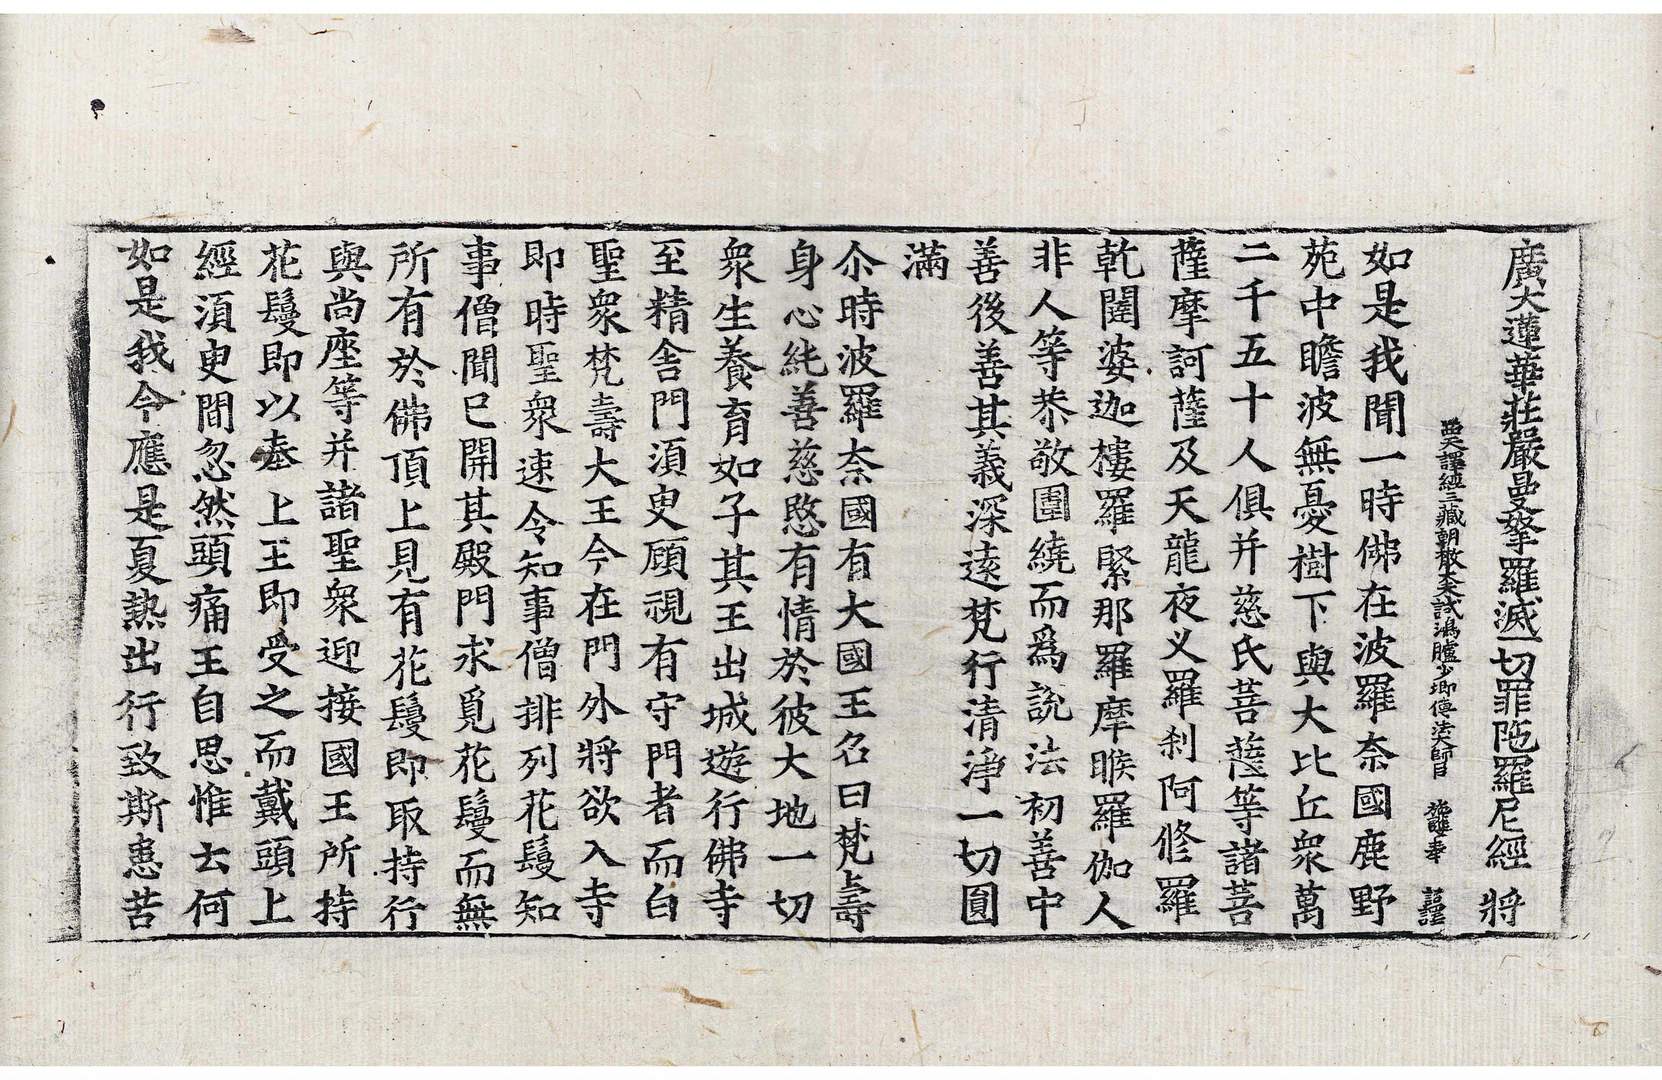 廣大蓮華莊嚴曼拏羅滅一切罪陁羅尼經 將
西天譯經三藏朝散大夫試鴻臚少卿傳法大師臣 施護奉 詔譯
如是我聞一時佛在波羅奈國鹿野
苑中瞻波無憂樹下與大比丘衆萬
二千五十人俱并慈氏菩薩等諸菩
薩摩訶薩及天龍夜叉羅刹阿修羅
乾闥婆迦樓羅緊那羅摩睺羅伽人
非人等恭敬圍繞而爲說法初善中
善後善其義深遠梵行清淨一切圓
滿
尒時波羅奈國有大國王名曰梵壽
身心純善慈愍有情於彼大地一切
衆生養育如子其王出城遊行佛寺
至精舍門湏臾顧視有守門者而白
聖衆梵壽大王今在門外將欲入寺
即時聖衆速令知事僧排列花鬘知
事僧聞巳開其殿門求覓花鬘而無
所有於佛頂上見有花鬘即取持行
與尚座等并諸聖衆迎接國王所持
花鬘即以奉上王即受之而戴頭上
經湏臾間忽然頭痛王自思惟云何
如是我今應是夏熱出行致斯患苦